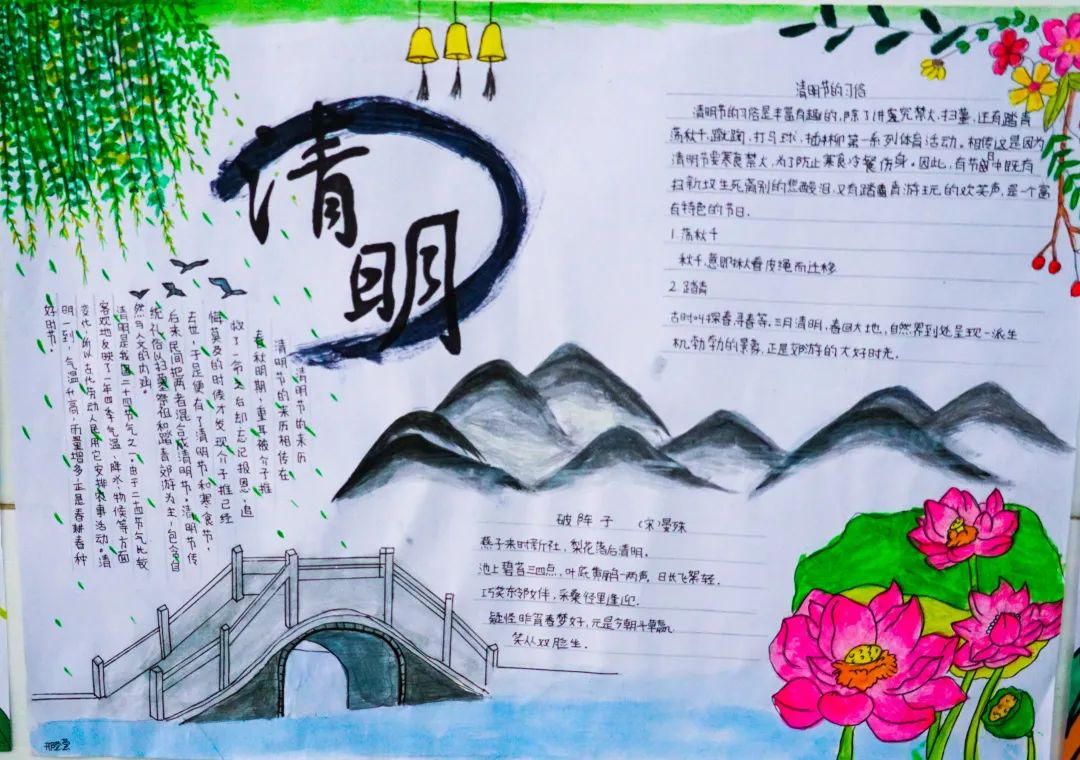 清明
清明节的习俗
清明节的习俗是丰富有趣的,除了讲究禁火、扫墓,还有踏青
荡秋千、蹴鞠、打马球、插柳等一系列体育活动。相传这是因为
清明节要寒食禁火,为了防止寒食冷餐伤身。因此,有节日中既有
扫新坟生死离别的悲酸泪,又有踏青游玩的欢笑声,是一个富
有特色的节日.
1.荡秋千
秋千,意即揪着皮绳而迁移
2.踏青
古时叫探春寻春等,三月清明,春回大地,自然界到处呈现一派生
机勃勃的景象,正是郊游的大好时光.
清明节的来历
清明节的来历相传在
春秋明期,重耳被介子推
救了一命之后却忘记报恩,追
悔莫及的时候才发现介子推已经
去世,于是便有了清明节和寒食节,
后来民间把两者混合成清明节。清明节传
统礼俗以扫墓祭祖和踏青郊游为主,包含自
然与人文的内涵。
清明是我国二十四节气之一由于二十四节气比较
客观地反映了一年四季气温、降水、物候等方面
变化,所以古代劳动人民用它安排农事活动。清
明一到,气温升高,雨量增多,正是春耕春种
好时节。
破阵子 (宋)晏殊
燕子来时新社,梨花落后清明。
池上碧苔三四点,叶底黄鹂一两声。日长飞絮轻.
巧笑东邻女伴,采桑径里逢迎.
疑怪昨宵春梦好,元是今朝斗草赢.
笑从双脸生.